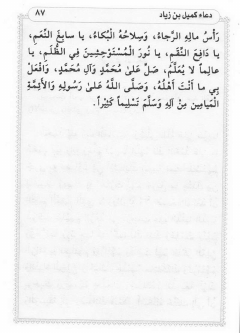 دعاء كميل بن زياد ٨٧
رَأْسُ مالِهِ الرَّجاءُ، وَسِلاحُهُ الْبُكاءُ، يا سابِغَ النِّعَمِ،
يا دافِعَ النِّقَمِ، يا نُورَ الْمُسْتَوْحِشِينَ فِي الظُّلَمِ، يا
عالِماً لا يُعَلَّمُ، صَلِّ عَلىٰ مُحَمَّدٍ وَآلِ مُحَمَّدٍ، وَافْعَلْ
بِي ما أَنْتَ أَهْلُهُ، وَصَلَّى اللهُ عَلىٰ رَسُولِهِ وَالأَئِمَّةِ
الْمَيامِينَ مِنْ آلِهِ وَسَلَّمَ تَسْلِيماً كَثِيراً.